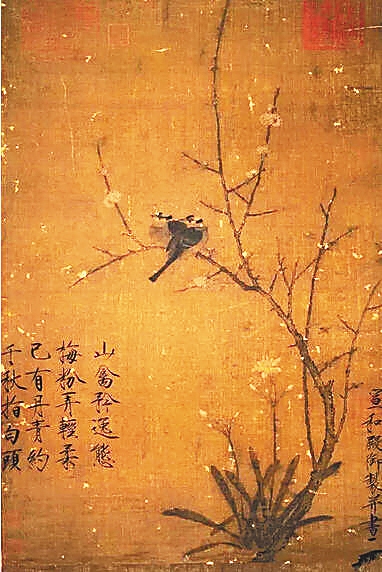 山禽矜逸態
梅粉弄輕柔
已有丹青約
千秋指白頭
宣和殿御製并書